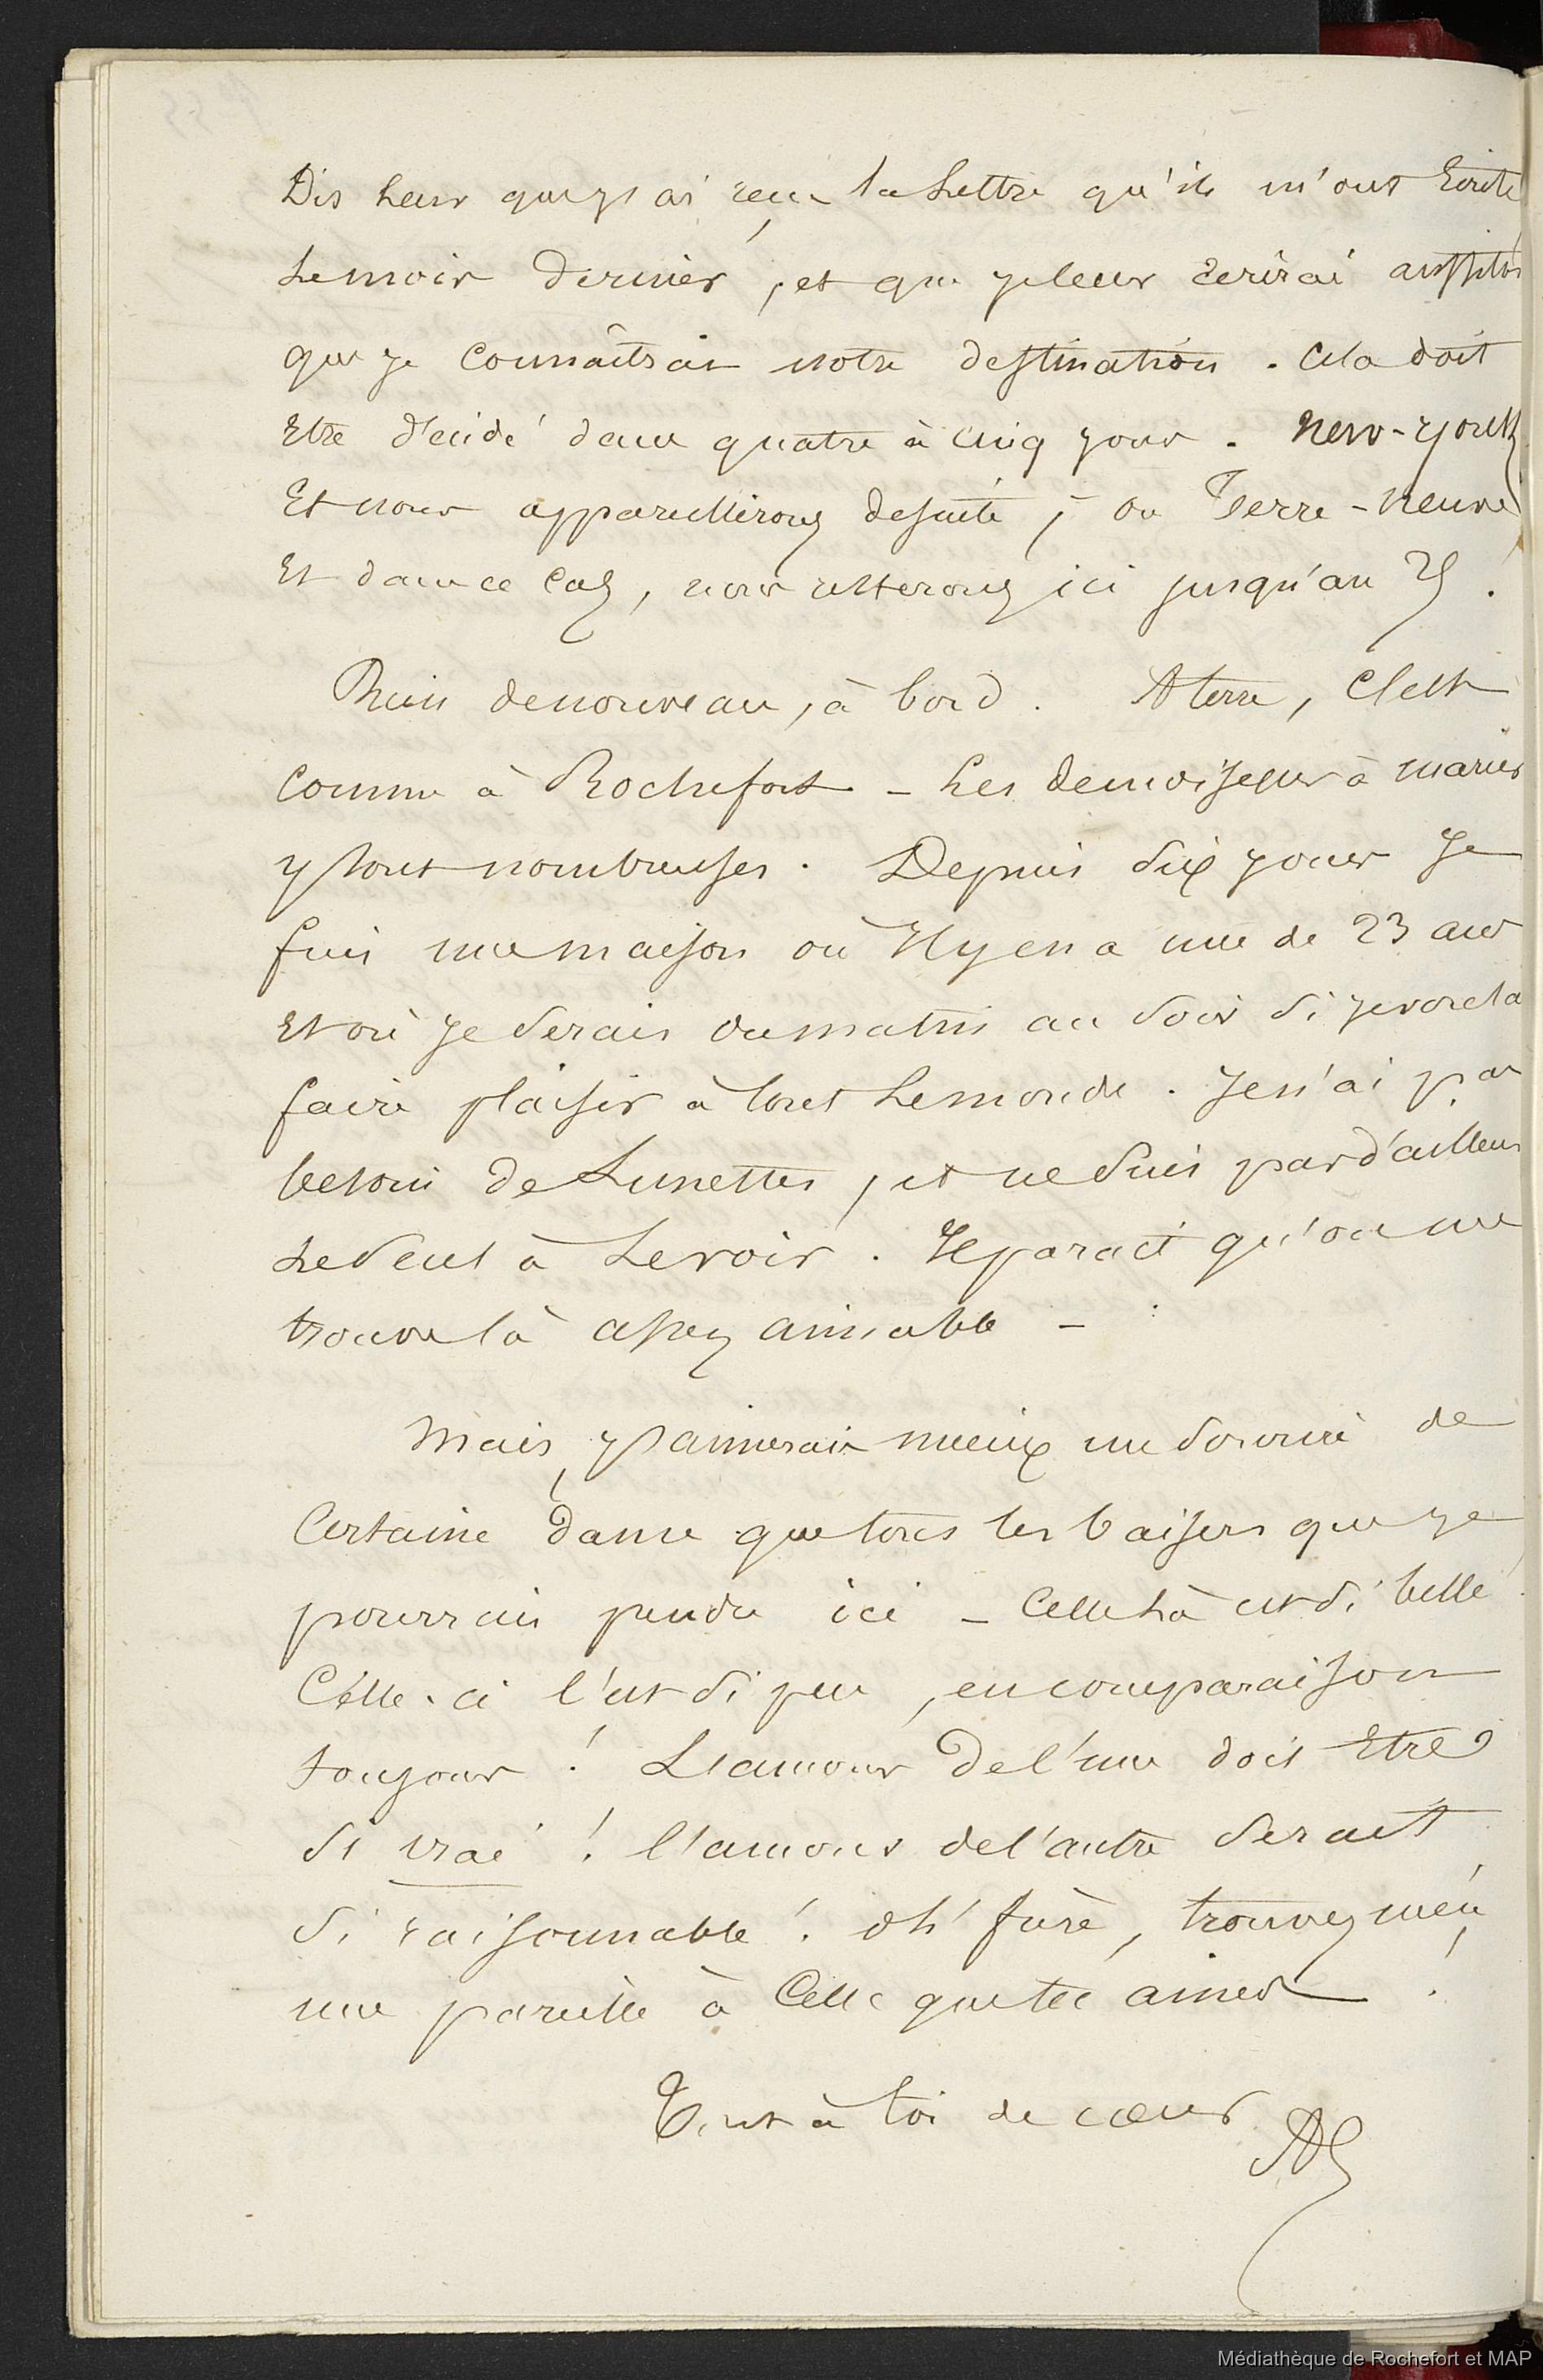 Dis leur que j'ai reçu la lettre qu'ils m'ont Ecrite
Le mois dernier, et que je leur Ecrirai aussitôt
que je connaîtrai notre destination. Cela doit
Etre décidé dans quatre à cinq jours. New-York
Et nous appareillerons desuite, ou Terre-neuve
Et dans ce cas, nous resterons ici jusqu'au 25.
Rien de nouveau, à bord. A terre, C'est
comme à Rochefort - Les demoiselles à marier
y sont nombreuses. Depuis dix jours Je
fuis une maison où Il y en a une de 23 ans
Et où je serais du matin au soir si je voulais
faire plaisir à tout Le monde. Je n'ai pas
besoin de Lunettes, et ne suis pas d'ailleurs
Le seul à Le voir. Il parait qu'on me
trouve là assez aimable -
Mais, j'aimerais mieux un sourire de
Certaine dame que tous les baisers que je
pourrais prendre ici - Celle là est si belle
Celle-ci l'est si peu, en comparaison
toujours ! L'amour de l'une doit Etre
si vrai ! l'amour de l'autre serait
si raisonnable ! oh' frère, trouvez m'en
une pareille à Celle que tu aimes !
Tout à toi de coeur
Médiathèque de Rochefort et MAP